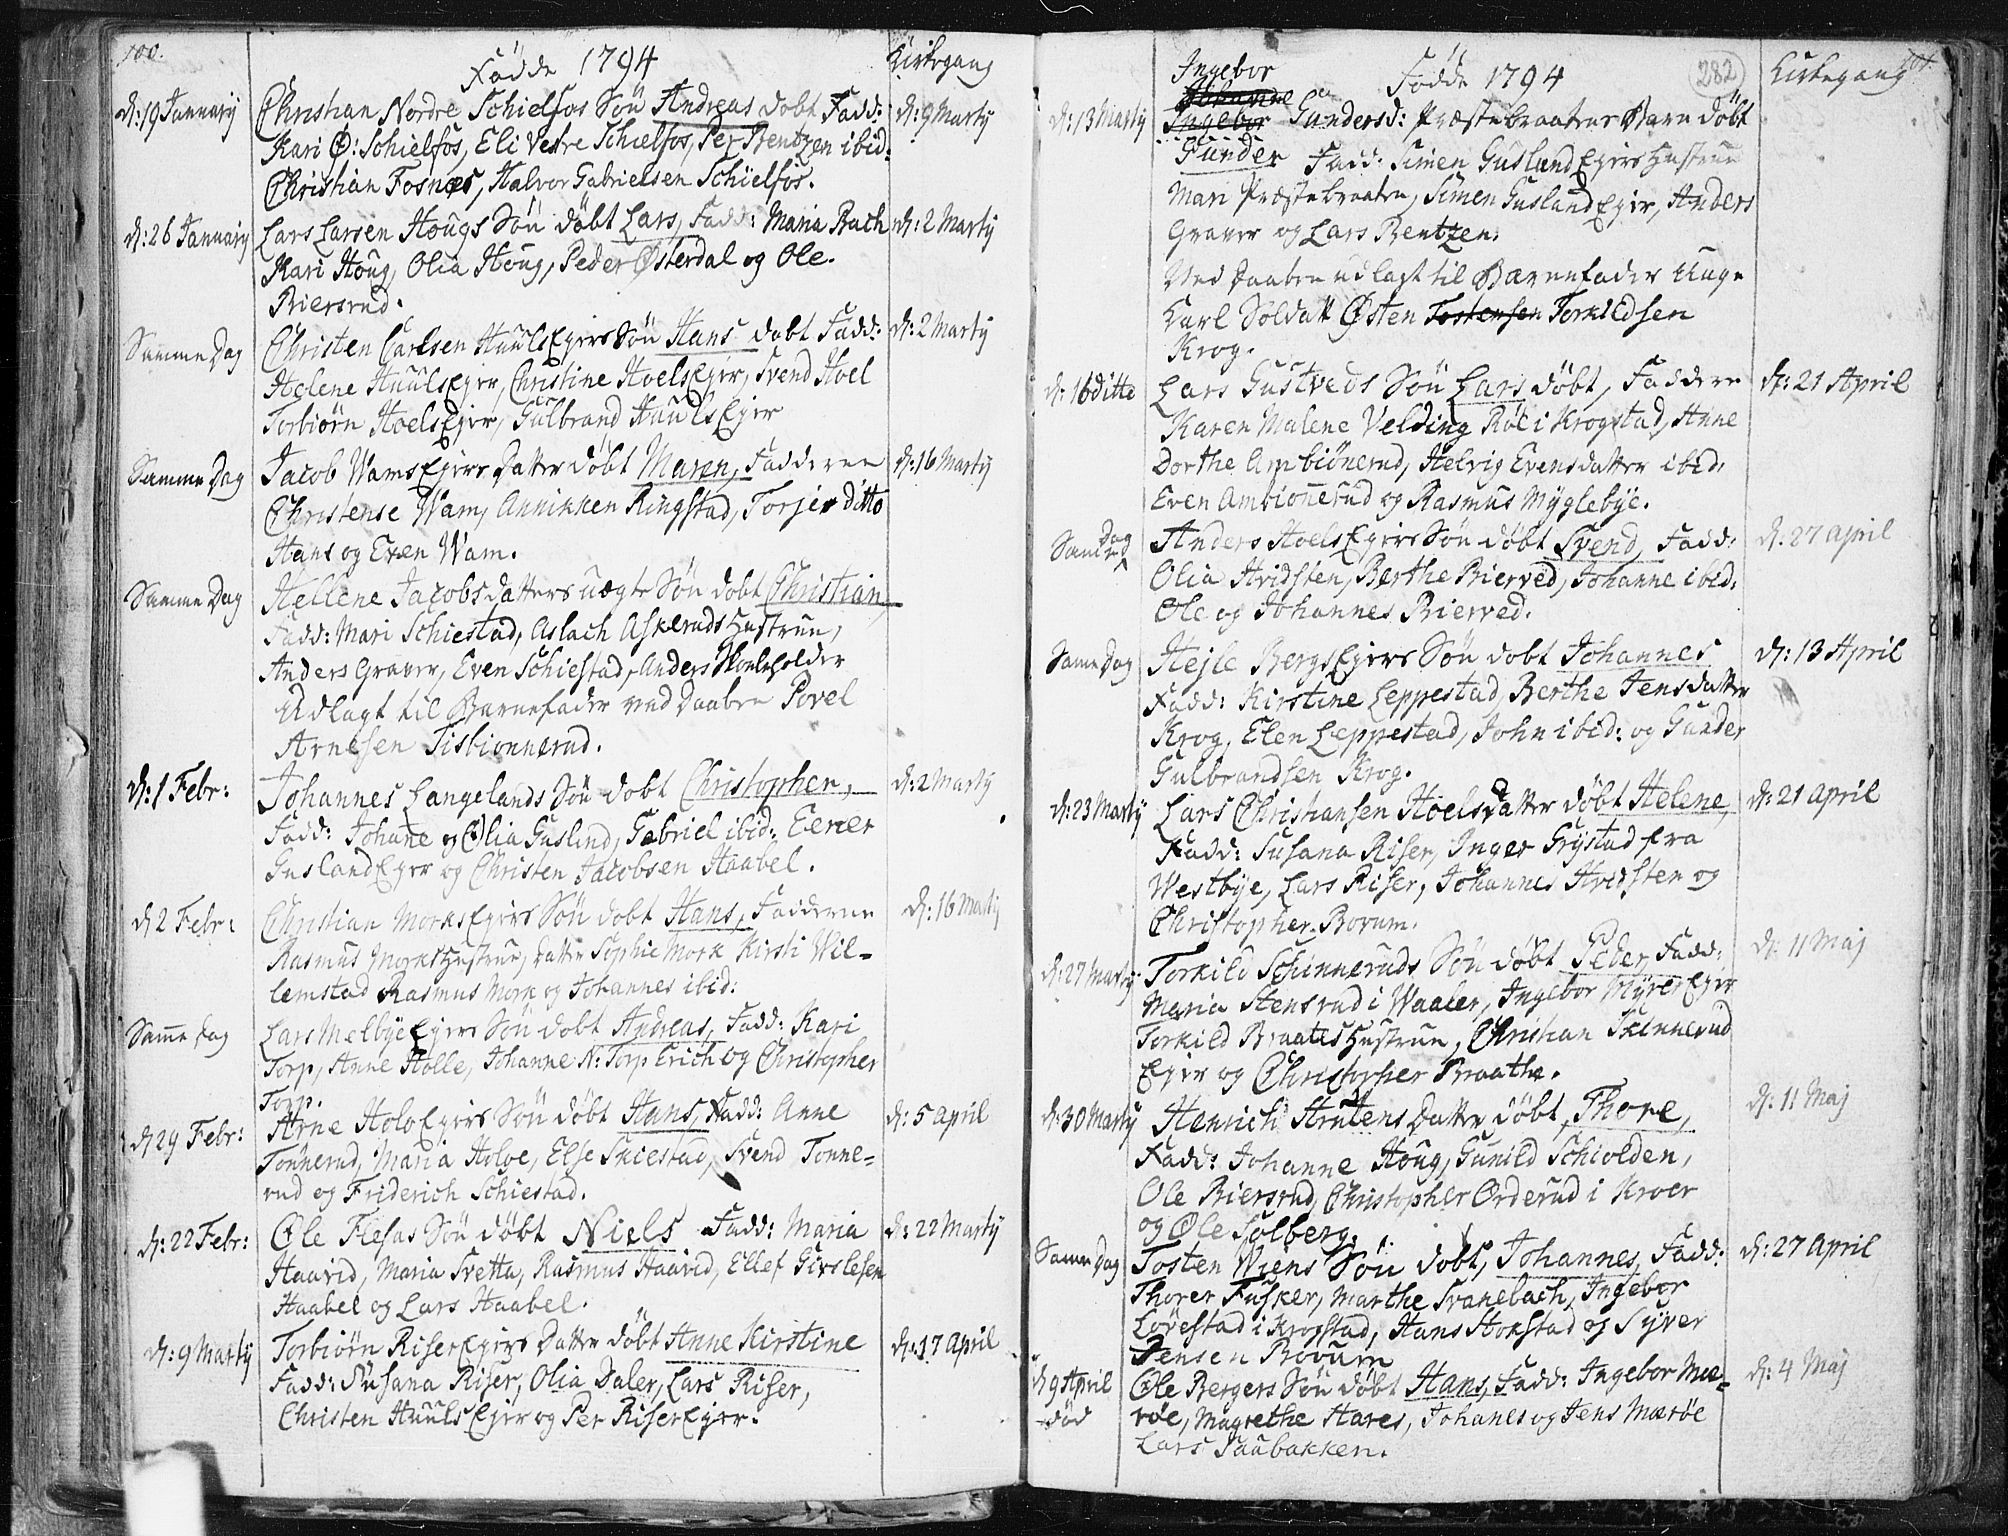 100.
Födde 1794
Kirkegang
d: 19 January
Christian Nordre Schielfos Sön Andreas dobt Fadd:
d: 9 Marty
Kari Ø: Schielfos, Eli Vestre Schielfos, Per Bentzen ibid:
Christian Fosnes, Halvor Gabrielsen Schielfos.
d: 26 January
Lars Larsen Hougs Sön döbt Lars, Fadd: Maria Bach
d: 2 Marty
Kari Houg, Olia Houg, Peder Østerdal og Ole
Biersrud.
Samme Dag
Christen Carlsen HuulsEgers Sön Hans dobt Fadd:
d: 2 Marty
Helene HuulsEger, Christine HoelsEger, Svend Hoel
Torbiörn HoelsEger, Gulbrand HuulsEger
Samme Dag
Jacob WamsEgers Datter döbt Maren, Fadderne
d: 16 Marty
Christense Wam, Annikken Ringstad, Torjer ditto
Hans og Even Wam.
Samme Dag
Hellene Jacobsdatters uægte Sön dobt Christian,
Fadd: Mari Schiestad, Aslach Askeruds Hustrue,
Anders Graver, Even Schiestad, Anders Skoleholder
Udlagt til Barnefader ved Daaben Povel
Arnesen Sisbionnerud.
d: 1 Febr:
Johannes Langelands Sön dobt Christopher,
d: 2 Marty
Fadd: Johane og Olia Guslund, Gabriel ibid: Ener
GuslandEger og Christen Jacobsen Haabel.
d 2 Febr:
Christian MorksEgers Sön dobt Hans, Fadderne
d: 16 Marty
Rasmus Morks Hustrue, Datter Sophie Mork Kirsti Wil-
lemstad Rasmus Mork og Johannes ibid:
Samme Dag
Lars MelbyeEgers Sön dobt Andreas, Fadd: Kari
Torp, Anne Holle, Johanne N: Torp Erich og Christopher
Torp.
d 29 Febr:
Arne HoloEgers Sön döbt Hans, Fadd: Anne
d: 5 April
Tonnerud, Maria Holoe, Else Skiestad, Svend Tonne-
rud og Friderich Schiestad.
d: 22 Febr:
Ole Flesas Sön döbt Niels Fadd: Maria
d: 22 Marty
Haavid, Maria Svetta, Rasmus Haavid, Ellef Girslesen
Haabel og Lars Haabel.
d: 9 Marty
Torbiörn RiserEgers Datter döbt Anne Kirstine
d: 17 April
Fadd: Susana Riser, Olia Daler, Lars Riser,
Christen HuulsEger og Per RiserEger.
101.
282
Ingebor
Födde 1794
Kirkegang
d: 13 Marty
Johanne
Ingebor Gundersd: Præstebraatens Barn döbt
Gunder Fadd: Simen GuslundEgers Hustrue
Mari Præstebraaten, Simen GuslandEger, Anders
Graver og Lars Bentzen.
Ved Daaben udlagt til Barnefader Unge
Karl Soldat Østen Tostensen Torkildsen
Krog.
d: 16 ditto
Lars Gustveds Sön Lars döbt, Faddere
d: 21 April
Karen Malene Velding Röe i Krogstad, Anne
Dorthe Ambiönerud, Helvig Evensdatter ibid:
Even Ambionnerud og Rasmus Myglebye.
Samme Dag
Anders HoelsEgers Sön döbt Svend, Fadd:
d. 27 April
Olia Hvidsten, Berthe Bierved, Johanne ibid,
Ole og Johannes Bierved.
Same Dag
Hejle BergsEgers Sön dobt Johannes
d: 13 April
Fadd: Kirstine Leppestad, Berthe Jensdatter
Krog, Elen Leppestad, John ibid: og Gunder
Gulbrandsen Krog.
d: 23 Marty
Lars Christiansen Hoels Datter döbt Helene,
d: 21 April
Fadd: Susana Riser, Inger Grystad fra
Westbye, Lars Riser, Johannes Hvidsten og
Christopher Bovum.
d: 27 Marty
Torkild Schinneruds Sön döbt Peder, Fadd:
d: 11 Maj
Maria Stensrud i Waaler, Ingebor MyrerEger
Torkild Braates Hustrue, Christian Skinnerud
Eger og Christopher Braathe.
d: 30 Marty
Henrich Strutens Datter döbt Thore,
d: 11 Maj
Fadd: Johanne Houg, Gunild Schiolden,
Ole Biersrud, Christopher Orderud i Kroer
og Ole Solberg.
Samme Dag
Tosten Wiens Sön dobt, Johannes, Fadd:
d: 27 April
Thorer Fusker, Marthe Svanebach, Ingebor
Lövestad i Krogstad, Hans Hokstad og Syver
Jensen Bovum
d 9 April
Ole Bergers Sön döbt Hans, Fadd: Ingebor Mæ-
d: 4 Maj
död
röe, Magrethe Hares, Johanes og Jens Mæröe
Lars Saubakken.